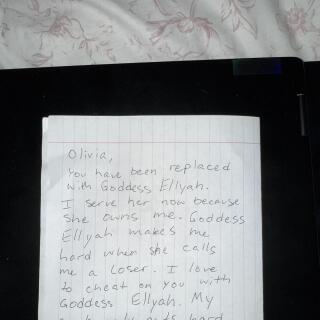 Olivia,
You have been replaced
with Goddess Ellyah.
I serve her now because
she owns me. Goddess
Ellyah makes me
hard when she calls
me a loser. I love
to cheat on you with
Goddess Ellyah. My
gets hard